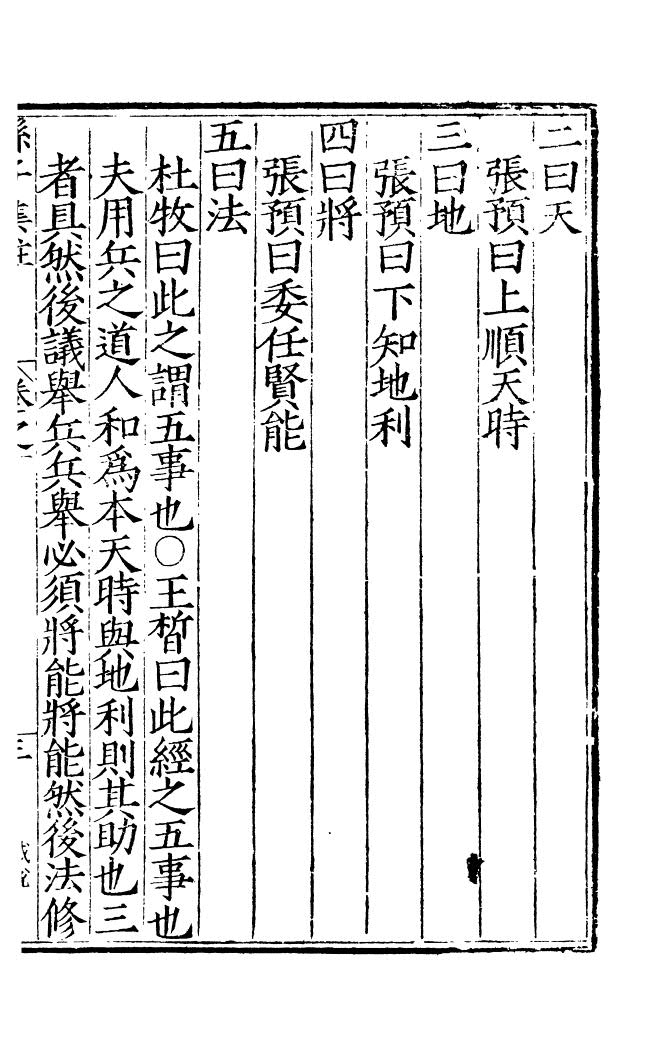 二曰天
張預曰上順天時
三曰地
張預曰下知地利
四曰將
張預曰委任賢能
五曰法
杜牧曰此之謂五事也○王晳曰此經之五事也
夫用兵之道人和爲本天時與地利則其助也三
者具然後議舉兵兵舉必須將能將能然後法修
孫子集註
卷之一
三